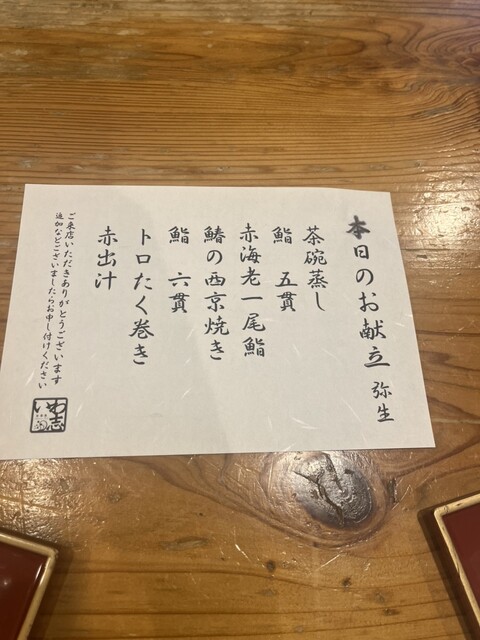 本日のお献立 弥生
茶碗蒸し
鮨 五貫
赤海老一尾鮨
鰆の西京焼き
鮨 六貫
トロたく巻き
赤出汁
ご来店いただきありがとうございます
追加などございましたらお申し付けください
いわ志